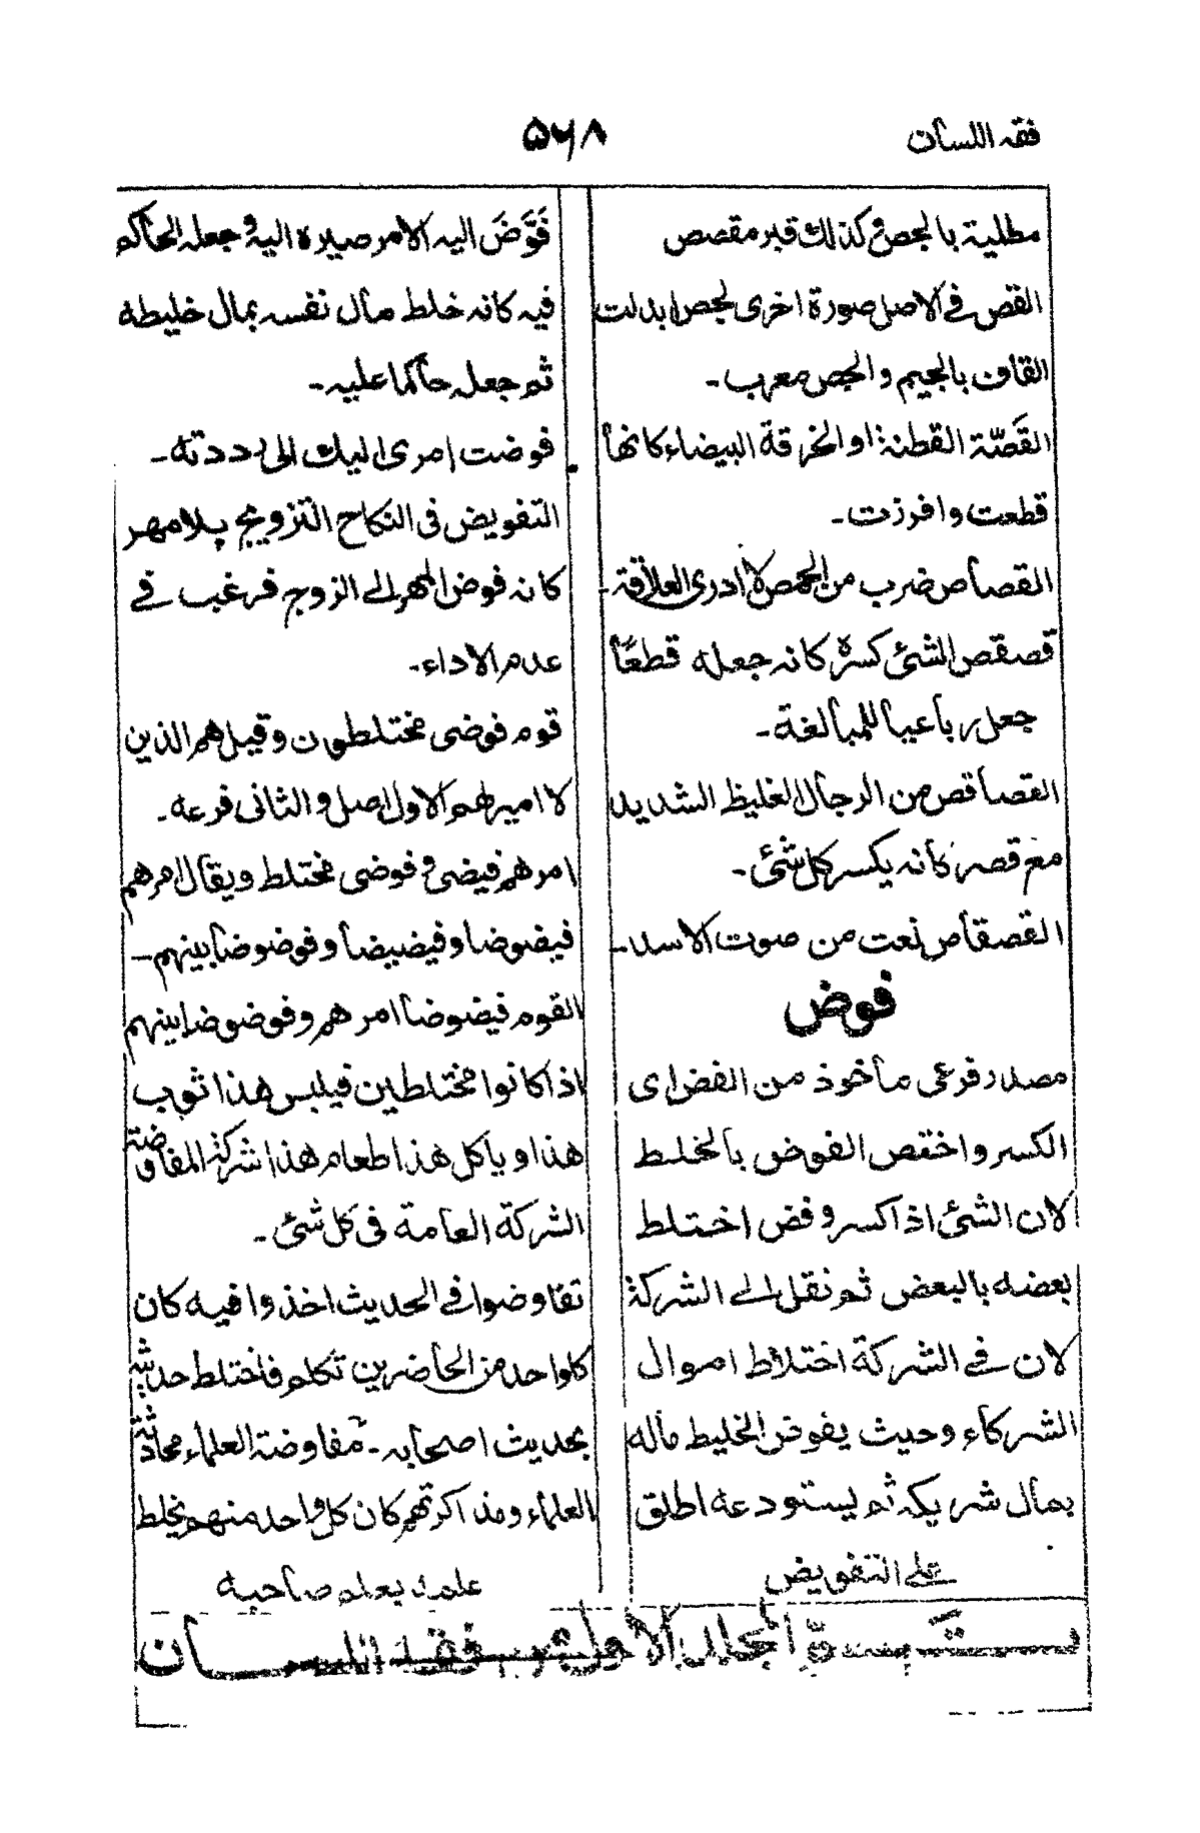 فقه اللسان
۵۶۸
مطلية بالجص وكذلك قبر مقصص
القص فى الاصل صورة اخرى لجص ابدلت
القاف بالجيم والجص معرب۔
القَصّة القطنة او الخرقة البيضاء كانها
قطعت وافرزت۔
القصاص ضرب من الحمص لا ادرى العلاقة۔
قصقص الشئ كسره كانه جعله قطعًا
جعل رباعيا للمبالغة۔
القصاقص من الرجال الغليظ الشديد
مع قصر كانه يكسر كل شئ۔
القصقاص نعت من صوت الاسد۔
فوض
مصدر فرعى مأخوذ من الفض اى
الكسر واختص الفوض بالخلط
لان الشئ اذا كسر وفض اختلط
بعضه بالبعض ثم نقل الى الشركة
لان فى الشركة اختلاط اموال
الشركاء وحيث يفوض الخليط ماله
بمال شريكه ثم يستودعه اطلق
على التفويض
فَوَّضَ اليه الامر صيره اليه وجعله الحاكم
فيه كانه خلط مال نفسه بمال خليطه
ثم جعله حاكما عليه۔
فوضت امرى اليك اى رددته۔
التفويض فى النكاح التزويج بلا مهر
كانه فوض المهر الى الزوج فرغب فى
عدم الاداء۔
قوم فوضى مختلطون وقيل هم الذين
لا امير لهم الاول اصل والثانى فرعه۔
امرهم فيضى وفوضى مختلط ويقال امرهم
فيضوضا وفيضيضا وفوضوضا بينهم۔
القوم فيضوضا امرهم وفوضوضا بينهم
اذا كانوا مختلطين فيلبس هذا ثوب
هذا وياكل هذا طعام هذا شركة المفاوضة
الشركة العامة فى كل شئ۔
تفاوضوا فى الحديث اخذوا فيه كان
كلواحد من الحاضرين تكلم فاختلط حديثه
بحديث اصحابه۔ مفاوضة العلماء محادثة
العلماء ومذاكرتهم كان كل واحد منهم يخلط
علمه بعلم صاحبه
المجلد الاول من فقه اللسان